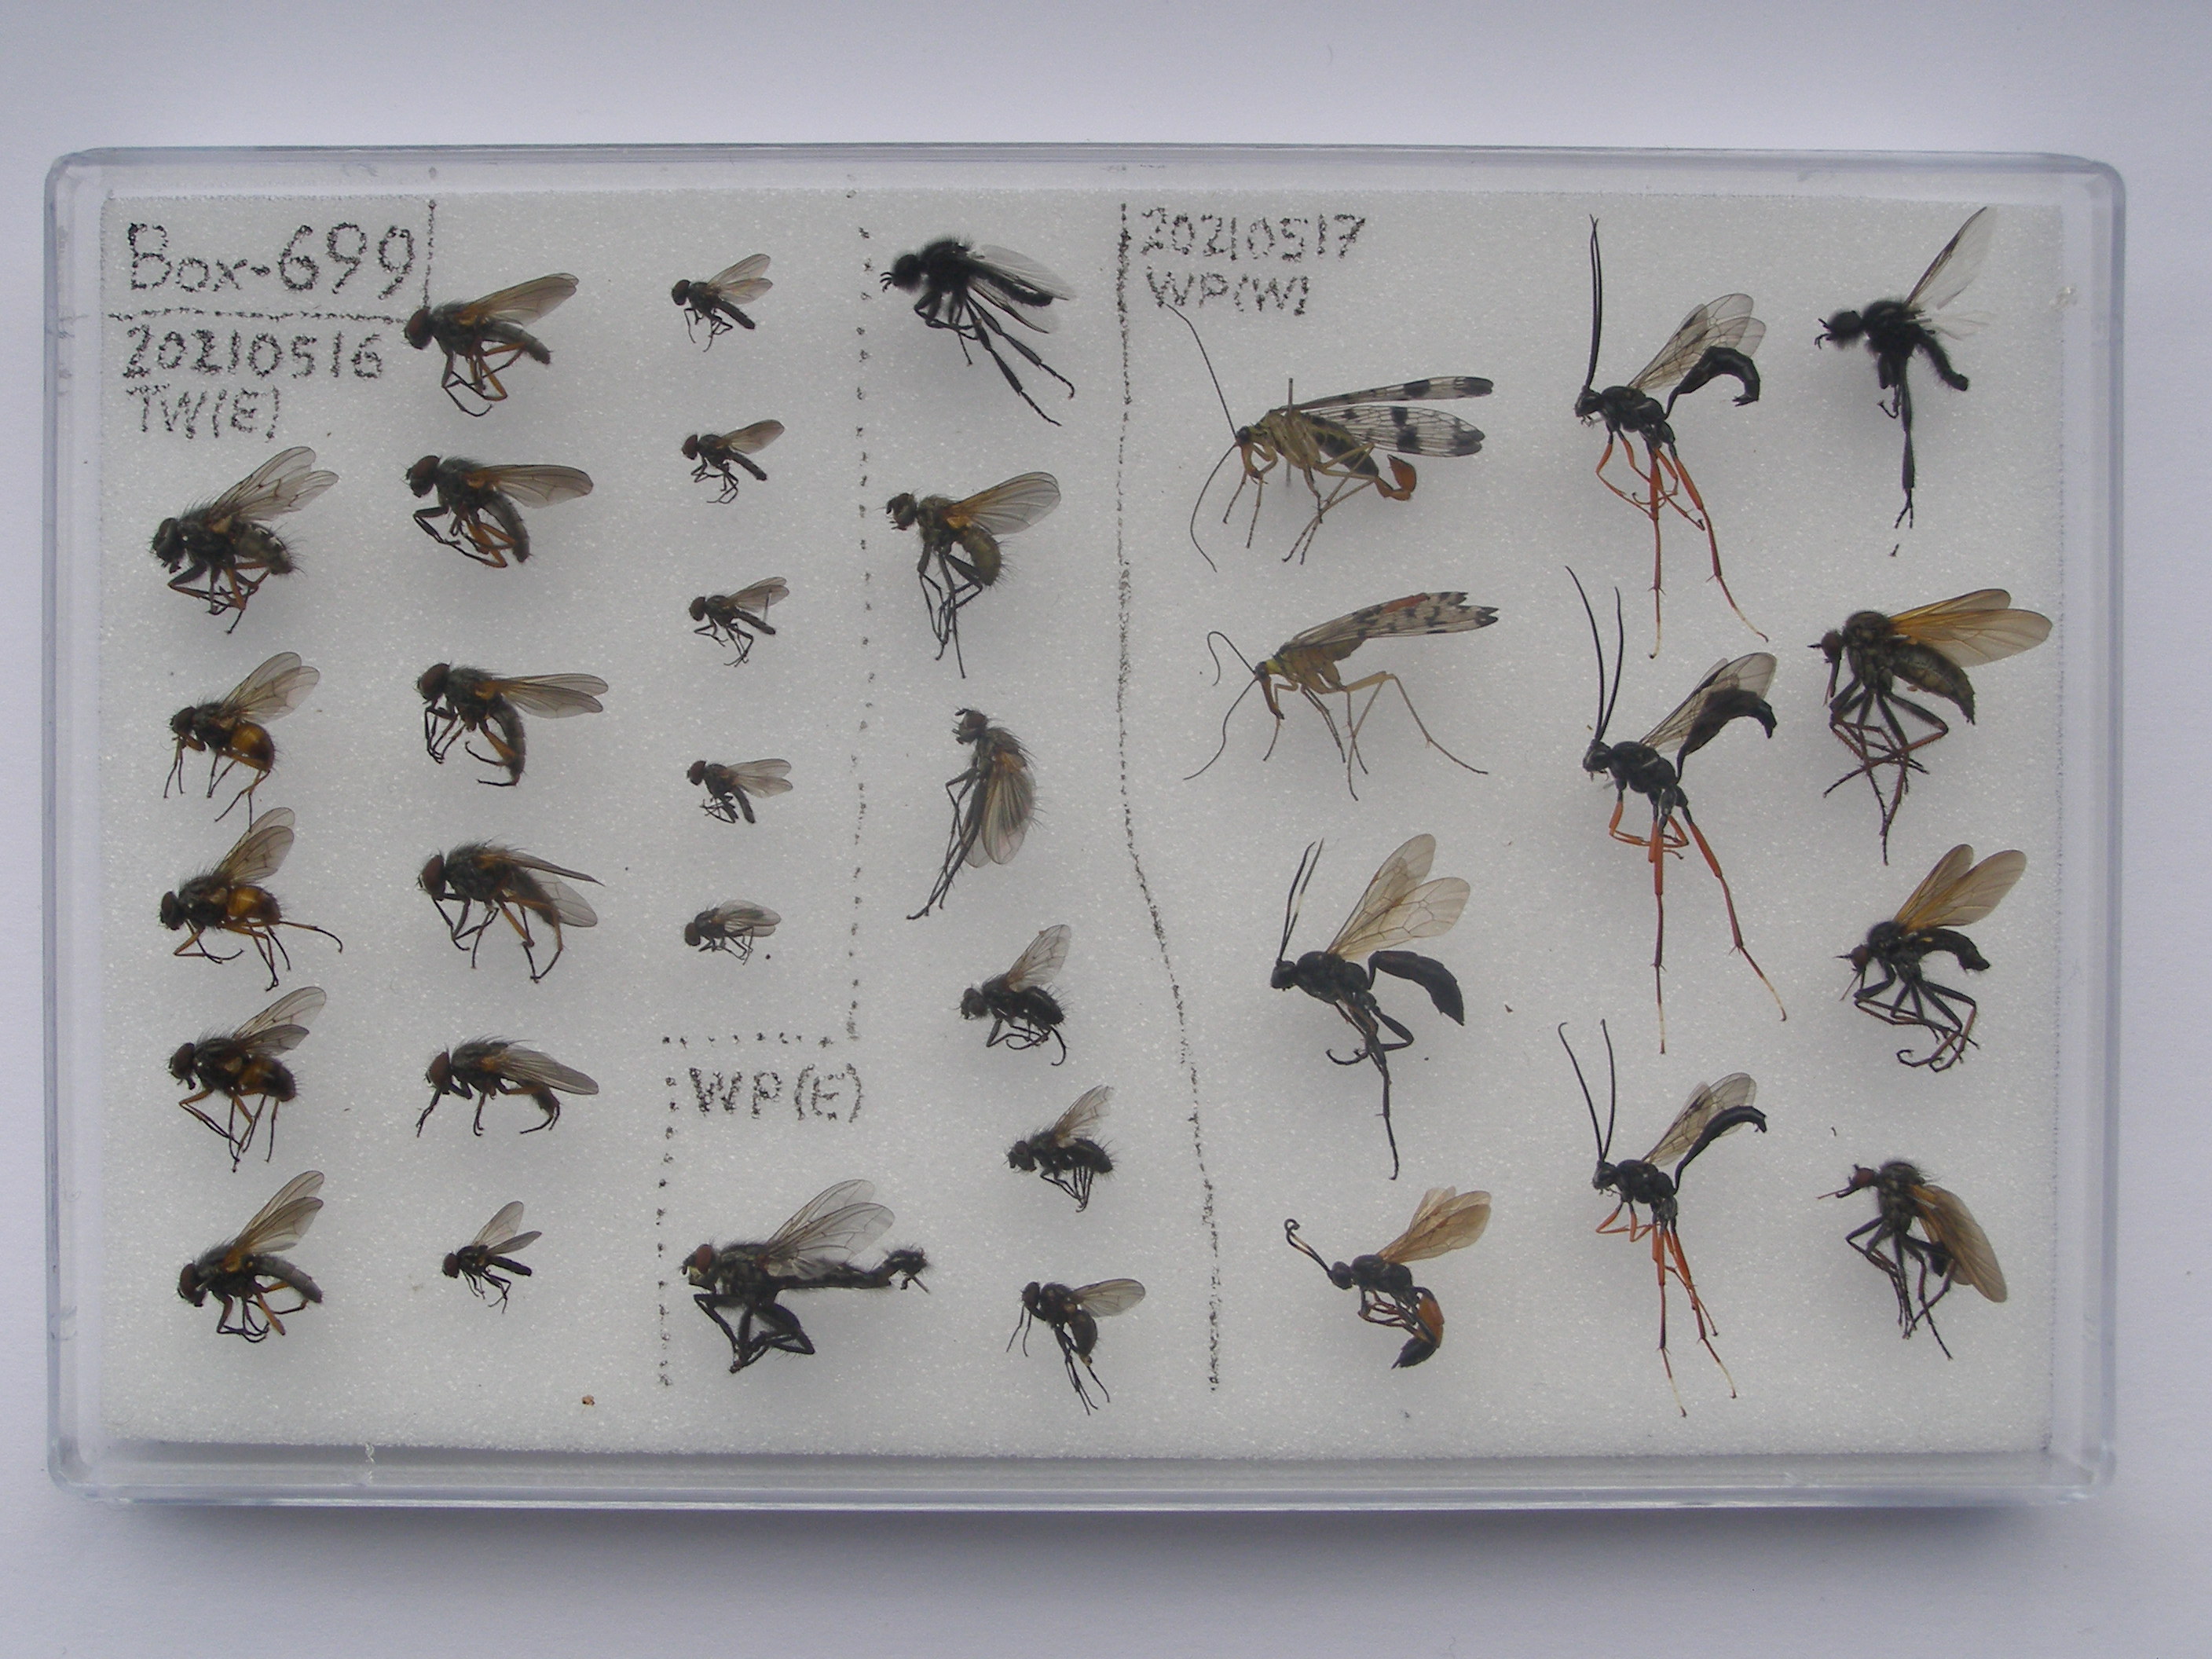 Box-699
20210516
TW(E)
WP(E)
20210517
WP(W)